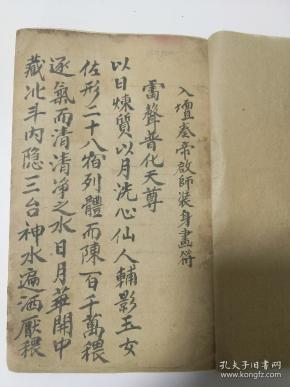 入壇奏帝啟師裝身畫符
雷聲普化天尊
以日煉質以月洗心仙人輔影玉女
佐形二十八宿列體而陳百千萬穢
逐氣而清清淨之水日月華開中
藏北斗內隐三台神水遍洒厭穢
孔夫子旧书网